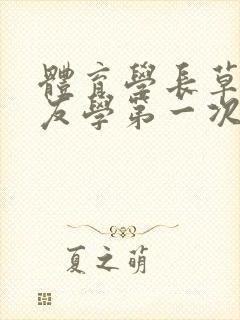 體育學長草
友學第一次
夏之萌